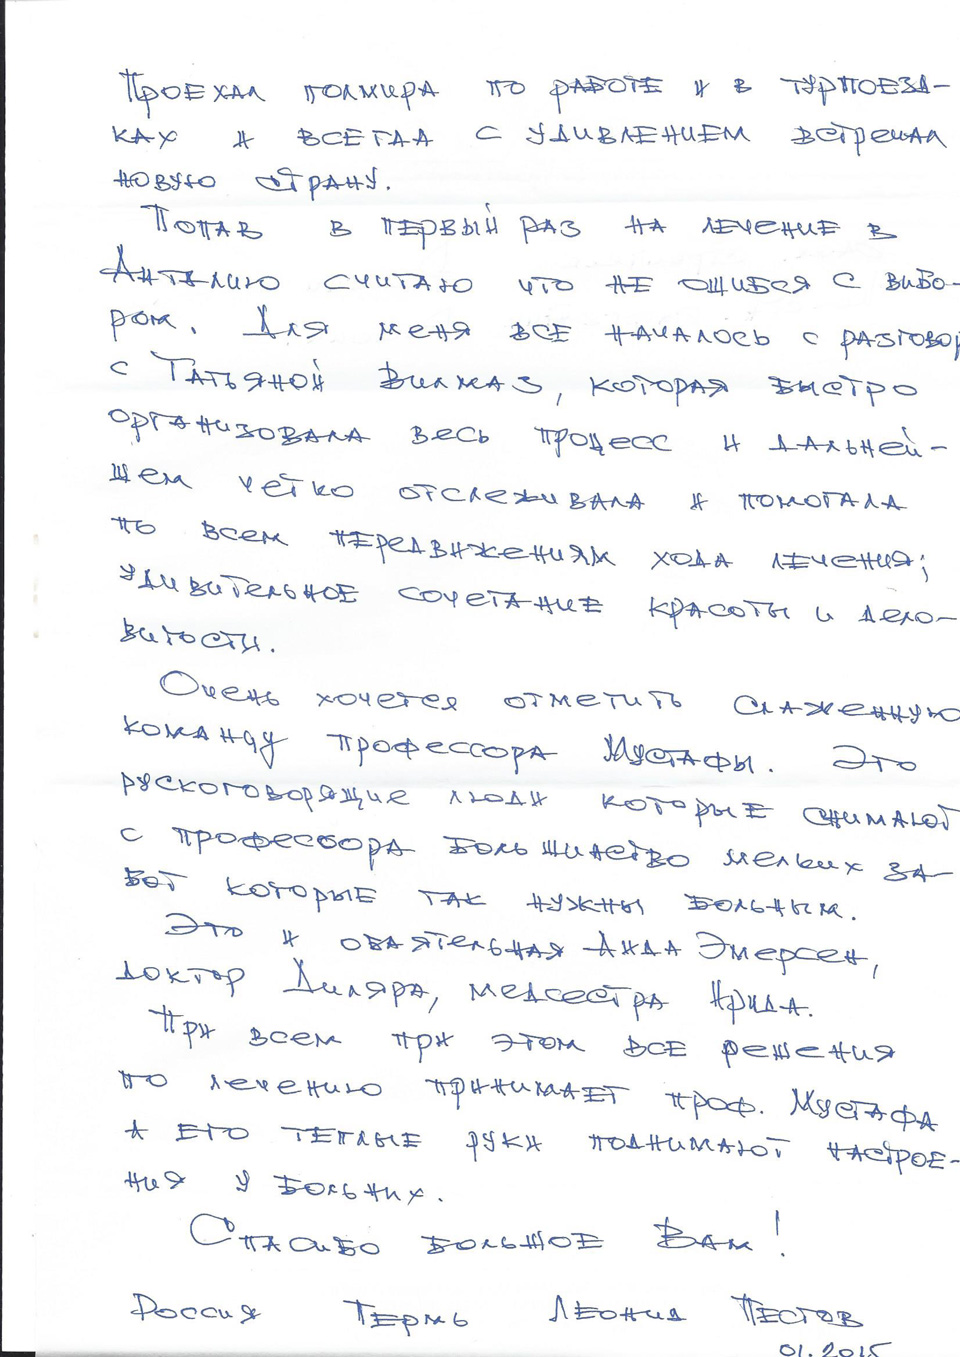 Проехал полмира по работе и в турпоезд-
ках и всегда с удивлением встречал
новую страну.
Попав в первый раз на лечение в
Анталию считаю что не ошибся с выбо-
ром. Для меня все началось с разговор
с Татьяной Вилмаз, которая быстро
организовала весь процесс и дальней-
шем четко отслеживала и помогала
по всем передвижениям хода лечения;
удивительное сочетание красоты и дело-
витости.
Очень хочется отметить слаженную
команду профессора Мустафы. Это
рускоговорящие люди которые снимают
с профессора большинство мелких за-
бот которые так нужны больным.
Это и обаятельная Аида Эмерсен,
доктор Диляра, медсестра Ирида.
При всем при этом все решения
по лечению принимает проф. Мустафа
а его теплые руки поднимают настрое-
ния у больных.
Спасибо большое Вам!
Россия Пермь Леонид Пестов
01.2015